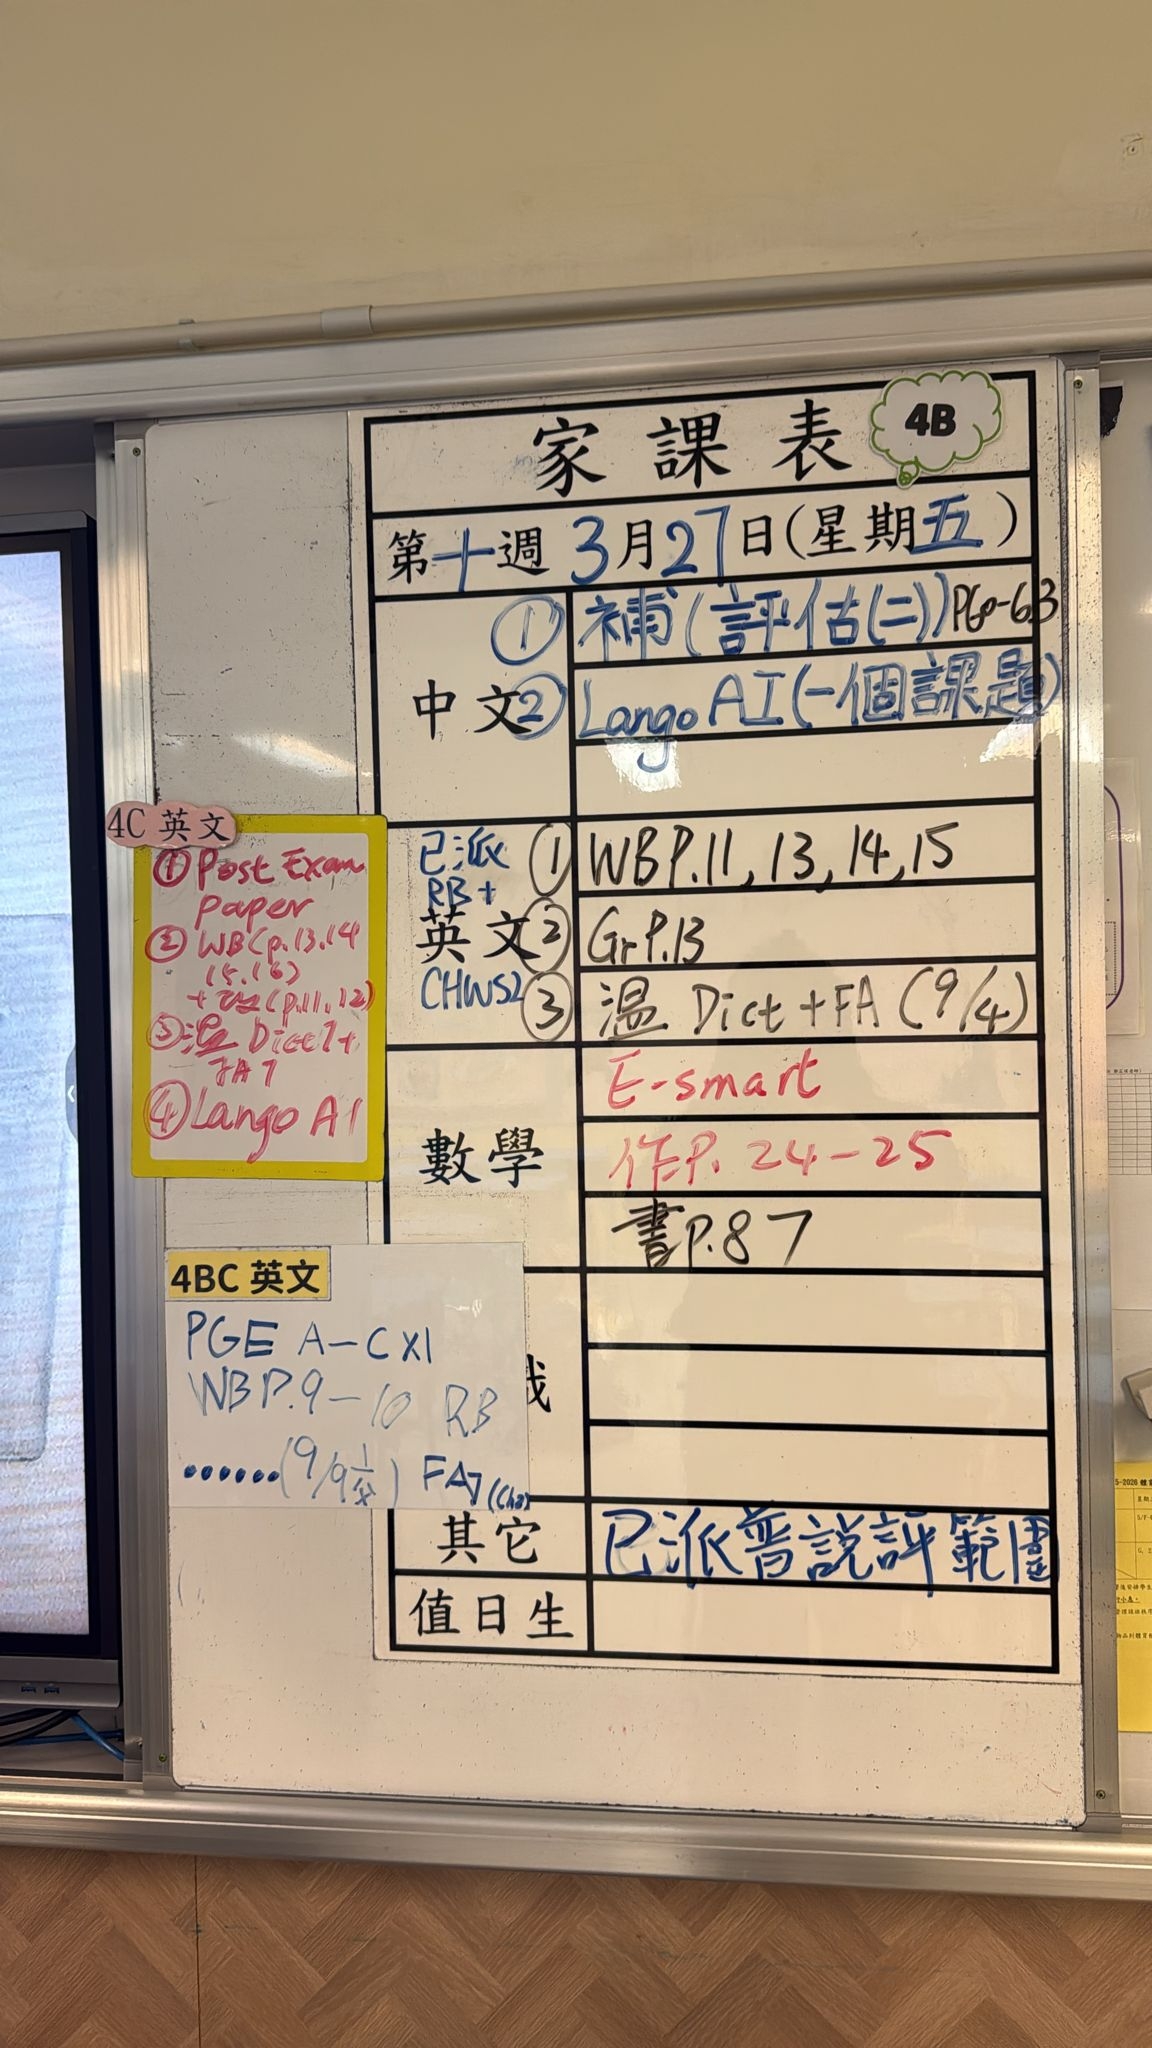 家課表
4B
第十週 3月27日(星期五)
中文
① 補(評估(二)) P60-63
② Lango AI (一個課題)
英文
已派
RB+
CHWS2
① WB P.11, 13, 14, 15
② Gr P.13
③ 溫 Dict + FA (9/4)
數學
E-smart
作P. 24-25
書P.87
其它
已派普說評範圍
值日生
4C 英文
① Post Exam
paper
② WB (p.13.14
15.16)
(p.11,12)
③ 溫 Dict 7+
FA 7
④ Lango AI
4BC 英文
PGE A-C X1
WB P.9-10 RB
......(9/9 FA7